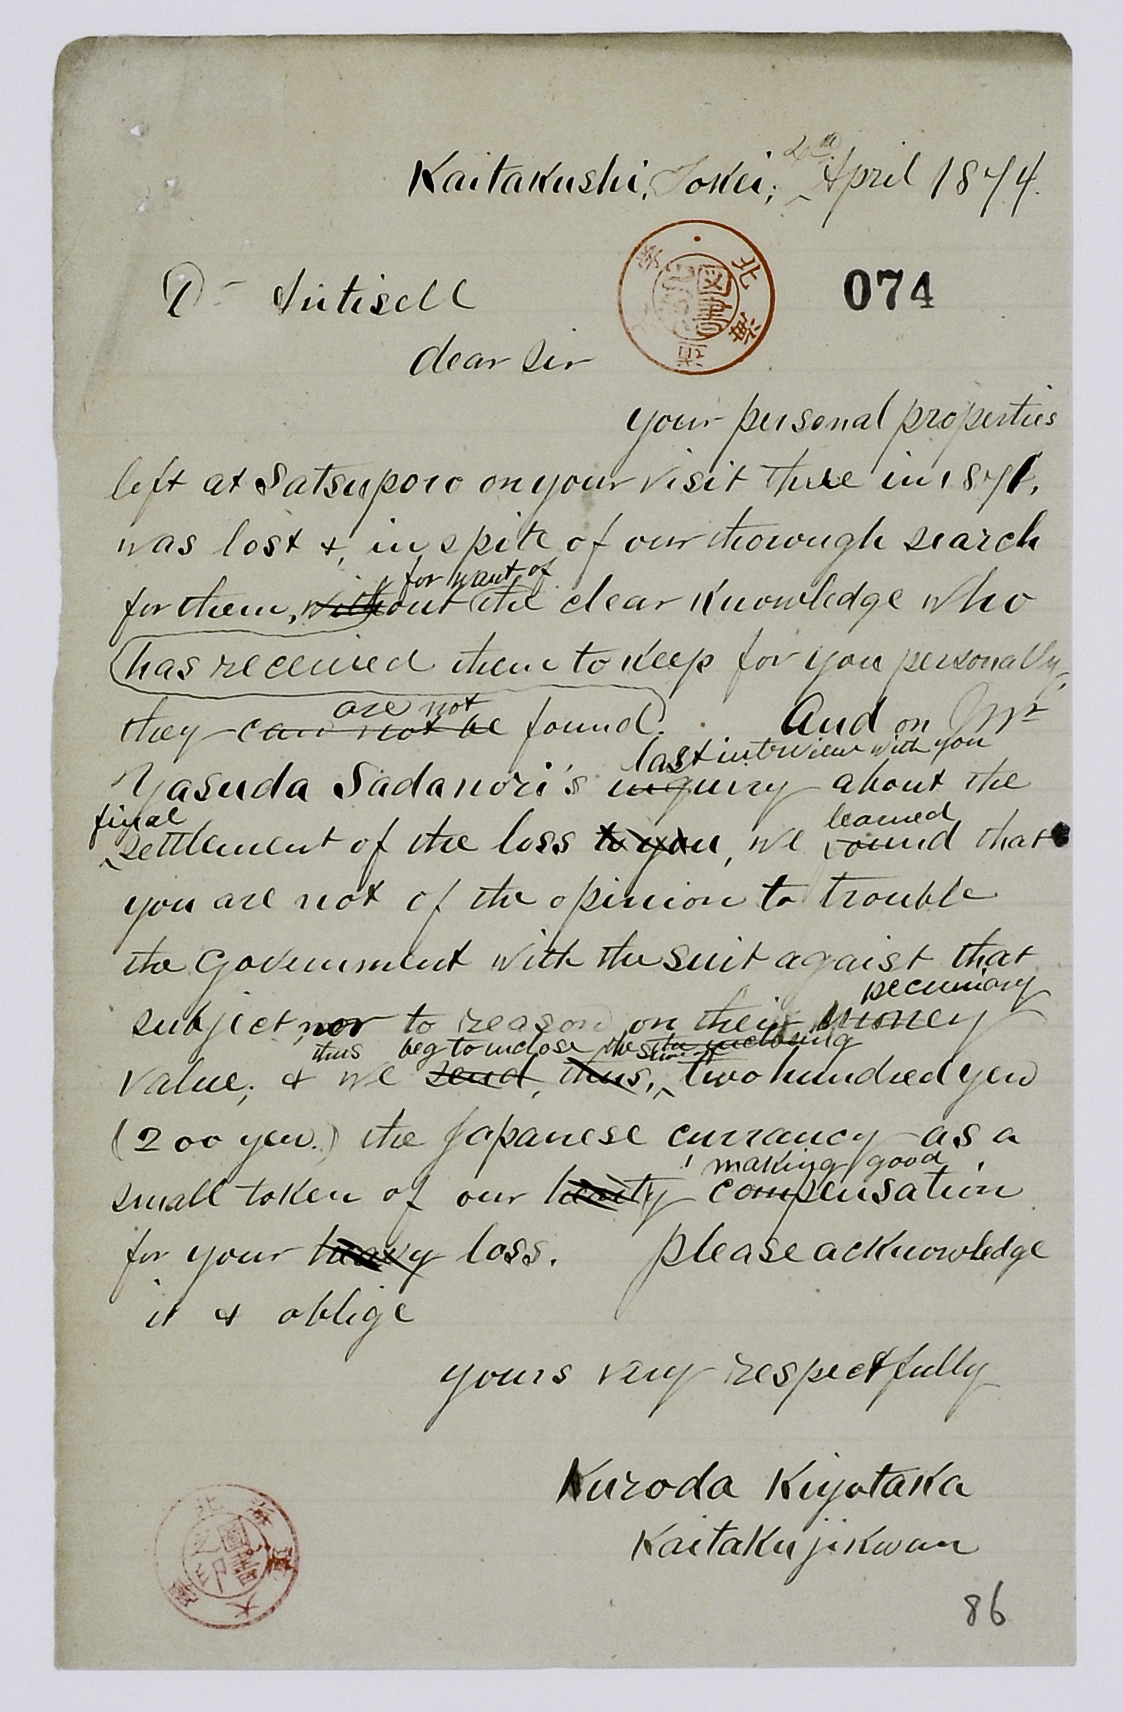 Kaitakushi, Tokei, 4th April 1874.
074
Antisell
dear Sir
your personal properties
left at Satsuporo on your visit there in 1871,
was lost &, in spite of our thorough search
for want of
for them, without the clear knowledge who
has received them to keep for you personally,
are not
they can not be found. And on Mr
last interview with you
Yasuda Sadanori's inquiry about the
final learned
settlement of the loss to you, we found that
you are not of the opinion to trouble
the Government with the suit agaist that
pecuniary
subject, nor to reason on their money
thus beg to inclose the sum of the inclosing
value; & we send, thus, two hundred yen
(200 yen.) the Japanese currancy as a
making good
small token of our hearty compensation
for your heavy loss. please acknowledge
it & oblige
yours very respectfully
Kuroda Kiyotaka
Kaitakujikwan
86